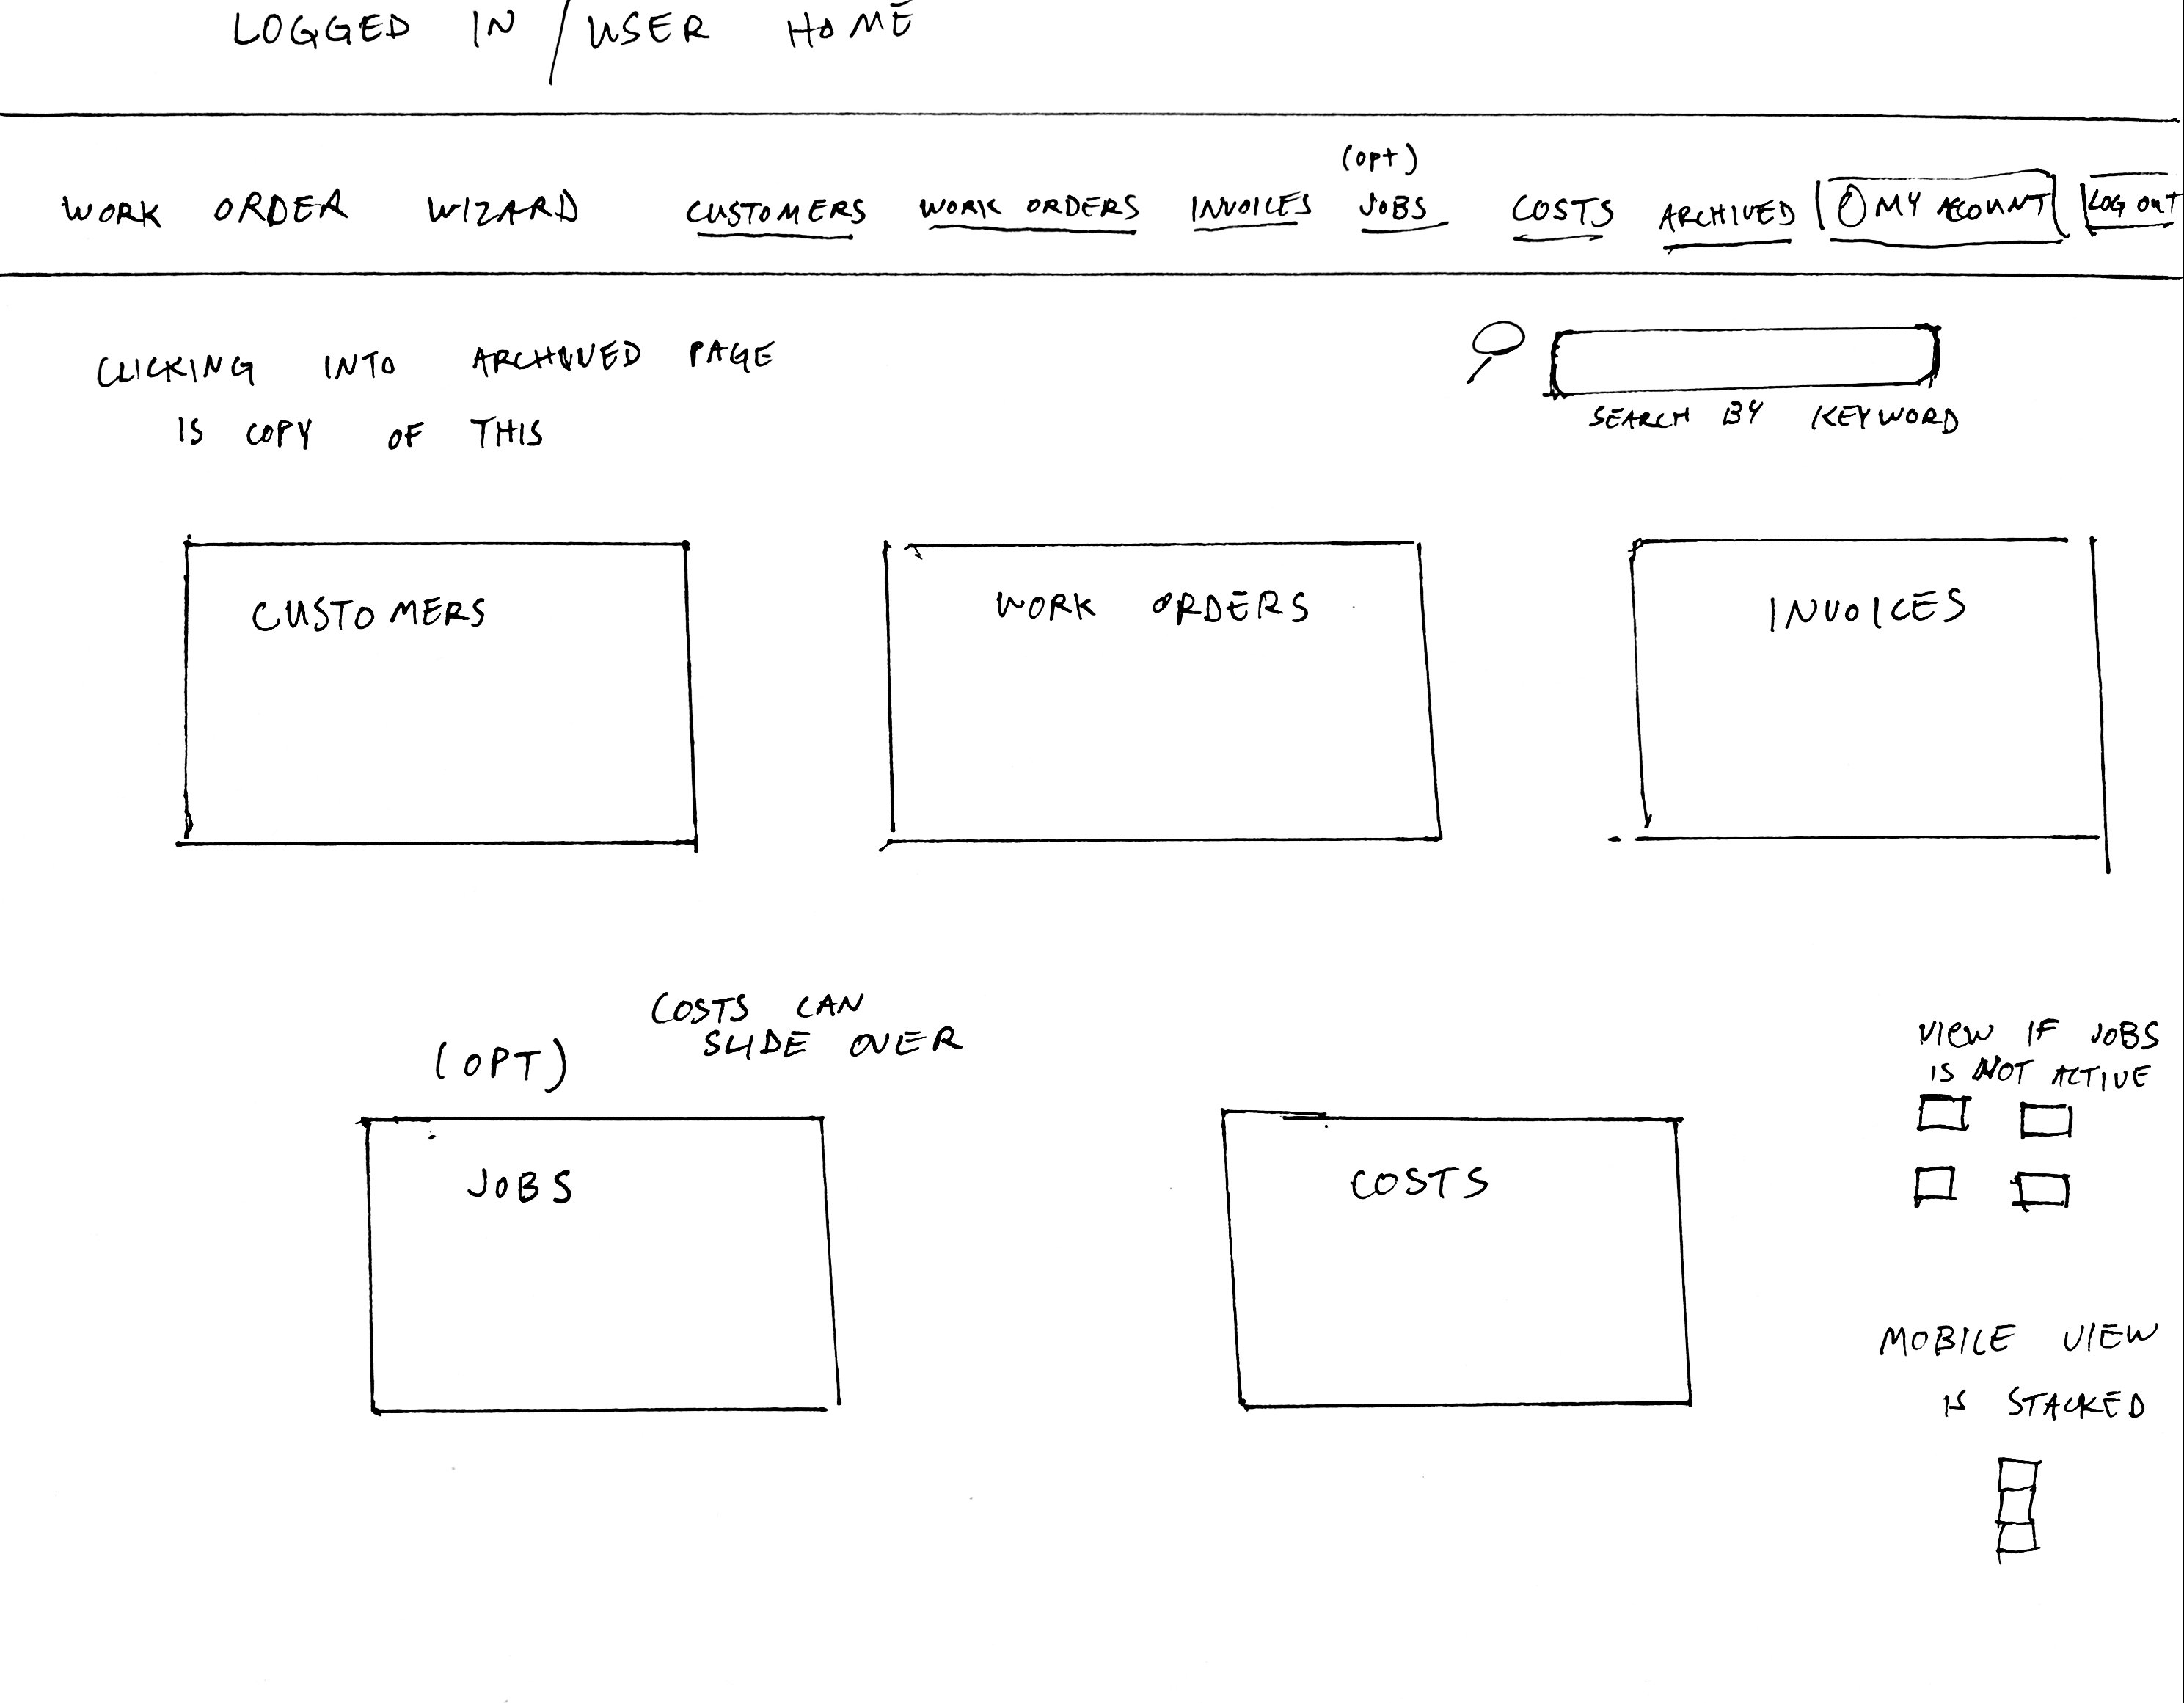 LOGGED IN / USER HOME
(OPT)
WORK ORDER WIZARD CUSTOMERS WORK ORDERS INVOICES JOBS COSTS ARCHIVED MY ACCOUNT LOG OUT
CLICKING INTO ARCHIVED PAGE
IS COPY OF THIS
SEARCH BY KEYWORD
CUSTOMERS
WORK ORDERS
INVOICES
COSTS CAN
SLIDE OVER
(OPT)
JOBS
COSTS
VIEW IF JOBS
IS NOT ACTIVE
MOBILE VIEW
IS STACKED